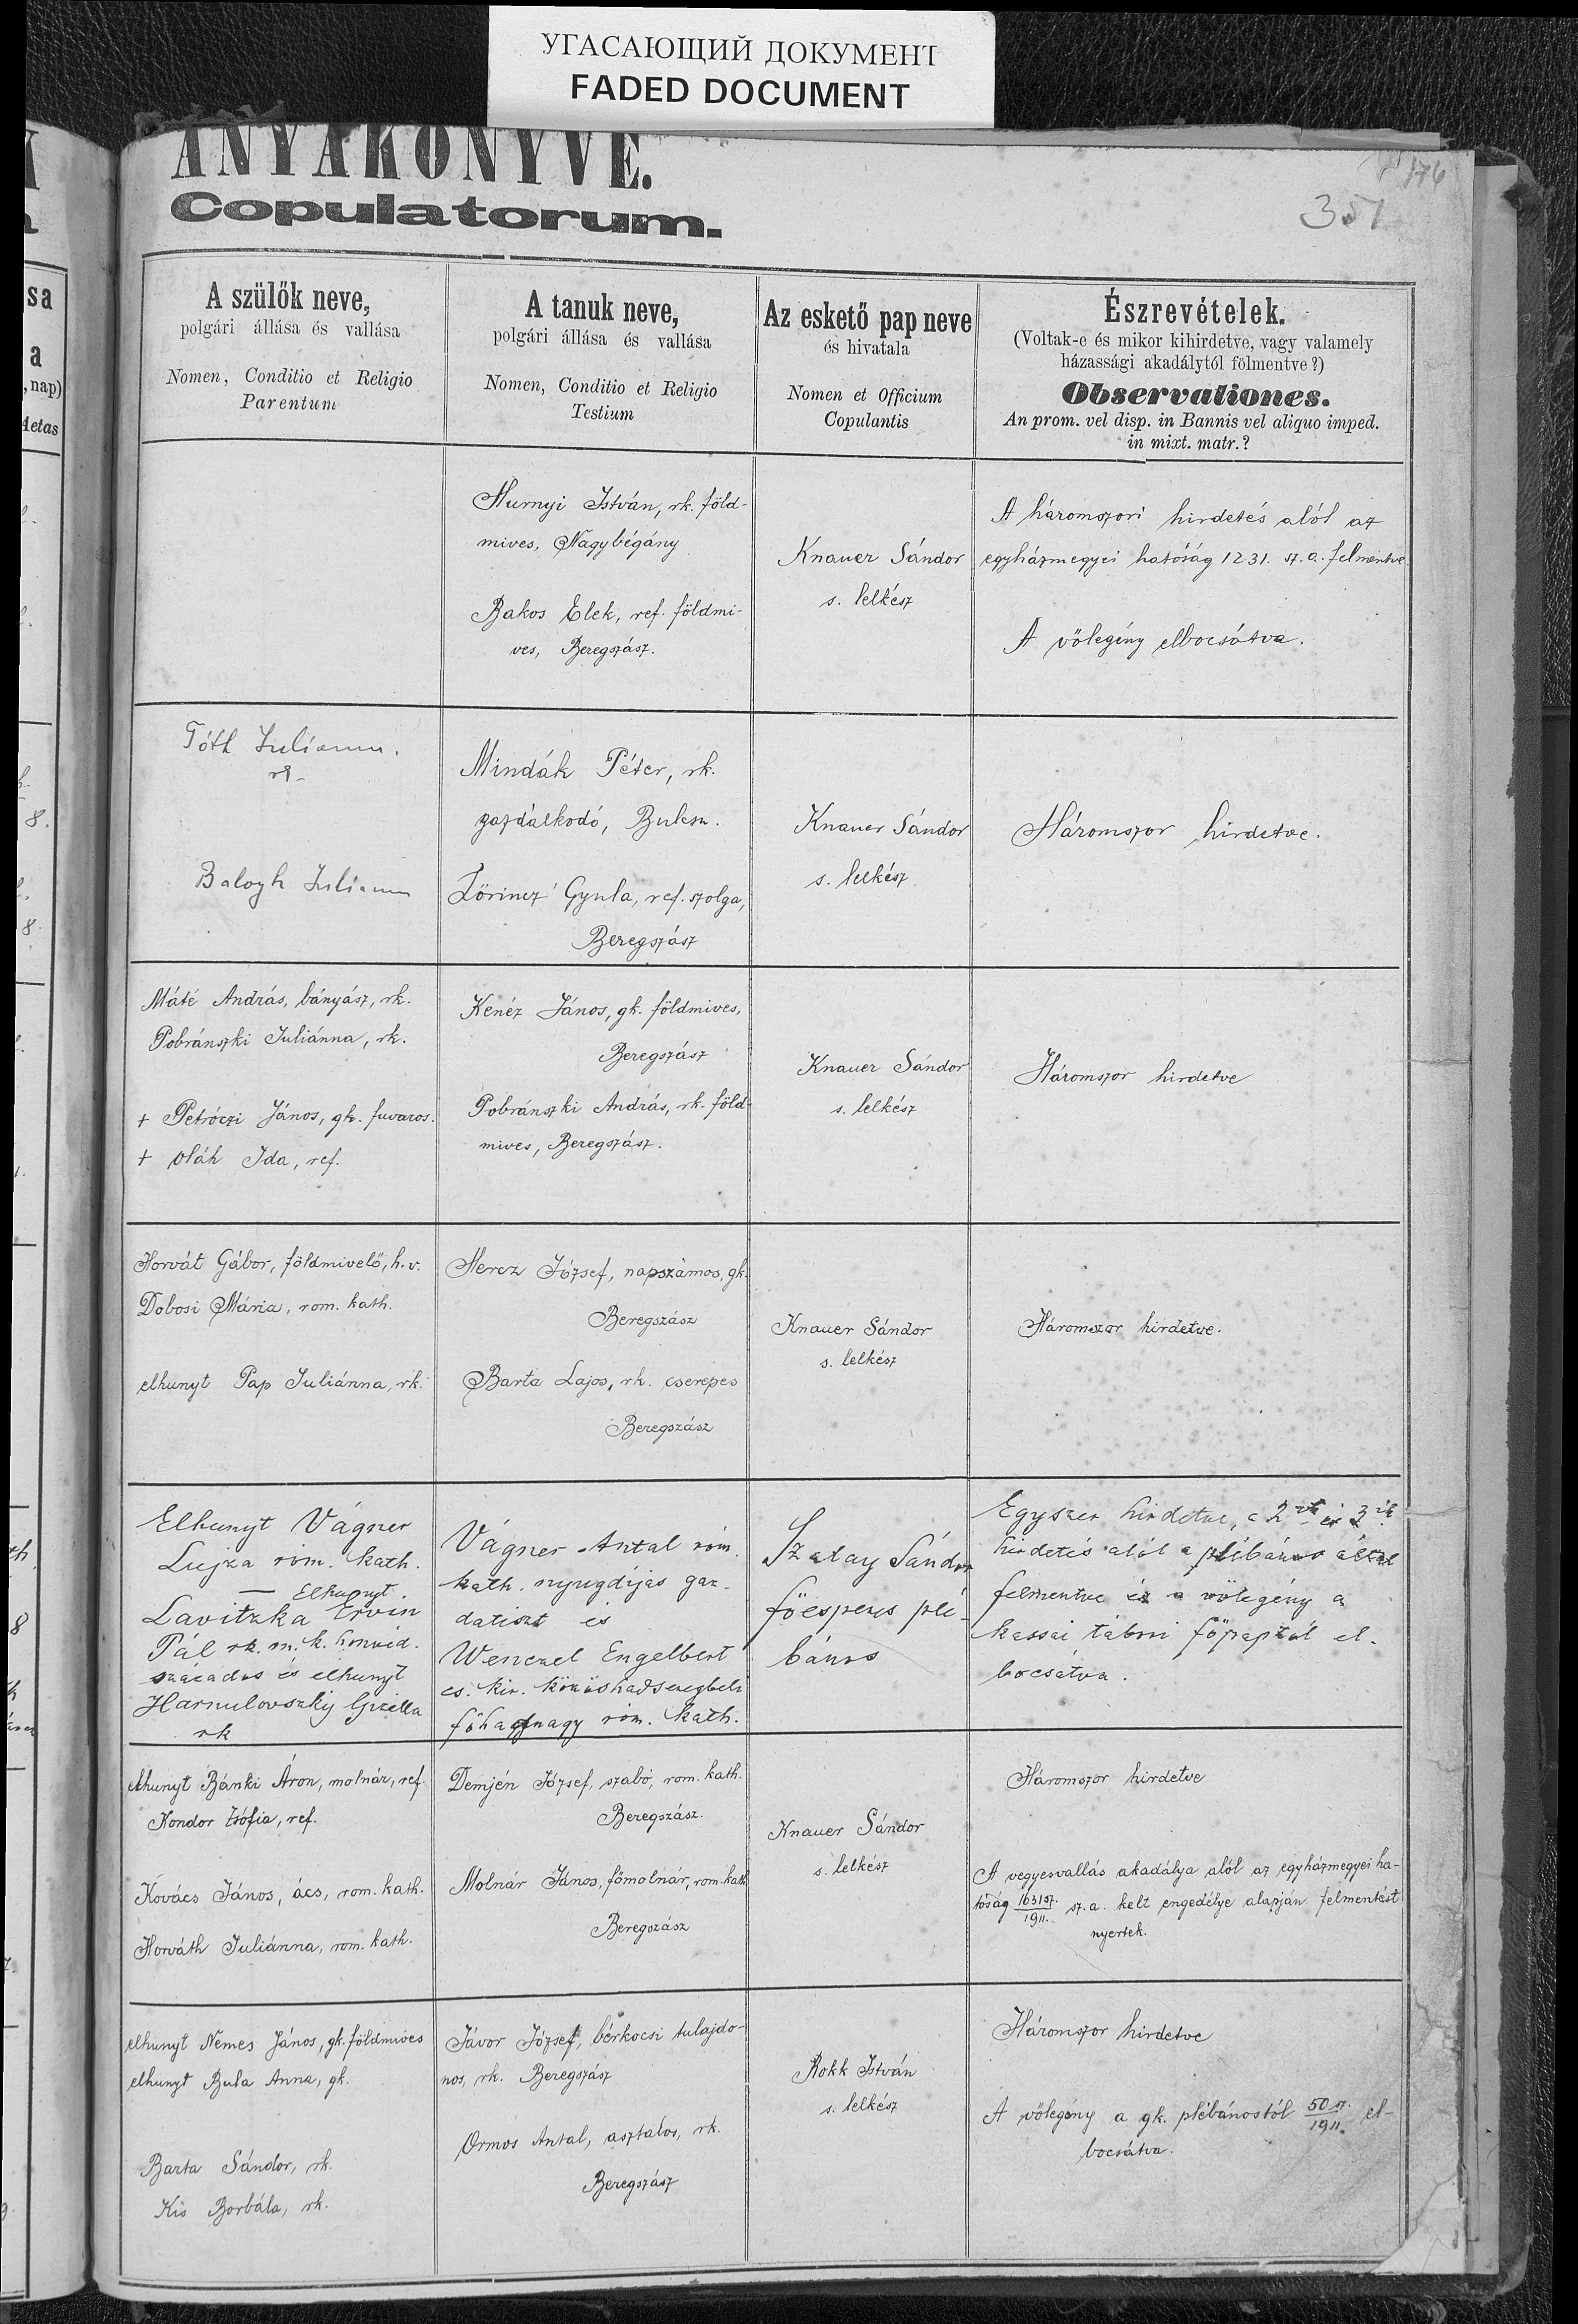 УГАСАЮЩИЙ ДОКУМЕНТ
FADED DOCUMENT
ANYAKÖNYVE.
Copulatorum.
176
351
A szülők neve,
polgári állása és vallása
Nomen, Conditio et Religio
Parentum
A tanuk neve,
polgári állása és vallása
Nomen, Conditio et Religio
Testium
Az eskető pap neve
és hivatala
Nomen et Officium
Copulantis
Észrevételek.
(Voltak-e és mikor kihirdetve, vagy valamely
házassági akadálytól fölmentve?)
Observationes.
An prom. vel disp. in Bannis vel aliquo imped.
in mixt. matr.?
Hurnyi István, rk. föld-
mives, Nagybégány
Bakos Elek, ref. földmi-
ves, Beregszász.
Knauer Sándor
s. lelkész
A háromszori hirdetés alól az
egyházmegyei hatóság 1231. sz. a. felmentve.
A vőlegény elbocsátva.
Tóth Julianna.
rk.
Balogh Julianna
Mindák Péter, rk.
gazdálkodó, Bulcsu.
Lőrincz Gyula, ref. szolga,
Beregszász
Knauer Sándor
s. lelkész
Háromszor hirdetve.
Máté András, bányász, rk.
Pobránszki Juliánna, rk.
+ Petróczi János, gk. fuvaros.
+ Oláh Ida, ref.
Kenéz János, gk. földmives,
Beregszász
Pobránszki András, rk. föld-
mives, Beregszász.
Knauer Sándor
s. lelkész
Háromszor hirdetve
Horvát Gábor, földmivelő, h. v.
Dobosi Mária, rom. kath.
elhunyt Pap Juliánna, rk.
Hercz József, napszámos, gk.
Beregszász
Barta Lajos, rk. cserepes
Beregszász
Knauer Sándor
s. lelkész
Háromszor hirdetve.
Elhunyt Vágner
Lujza róm. kath.
— Elhunyt
Lavitzka Ervin
Pál rk. m. k. honvéd.
százados és elhunyt
Harnulovszky Gizella
rk
Vágner Antal róm.
kath. nyugdíjas gaz-
datiszt és
Wenczel Engelbert
cs. kir. közöshadseregbeli
főhadnagy róm. kath.
Szalay Sándor
főesperes plé-
bános
Egyszer hirdetve, a 2ik és 3ik
hirdetés alól a plébános által
felmentve és a vőlegény a
kassai tábori főpaptól el-
bocsátva.
elhunyt Bánki Áron, molnár, ref.
Kondor Zsófia, ref.
Kovács János, ács, rom. kath.
Horváth Juliánna, rom. kath.
Demjén József, szabó, rom. kath.
Beregszász.
Molnár János, főmolnár, rom. kath
Beregszász
Knauer Sándor
s. lelkész
Háromszor hirdetve
A vegyesvallás akadálya alól az egyházmegyei ha-
tóság 1631 sz./1911. sz. a. kelt engedélye alapján felmentést
nyertek.
elhunyt Nemes János, gk. földmives
elhunyt Bula Anna, gk.
Barta Sándor, rk.
Kis Borbála, rk.
Jávor József, bérkocsi tulajdo-
nos, rk. Beregszász
Ormos Antal, asztalos, rk.
Beregszász
Rokk István
s. lelkész
Háromszor hirdetve
A vőlegény a gk. plébánostól 50 sz./1911. el-
bocsátva.